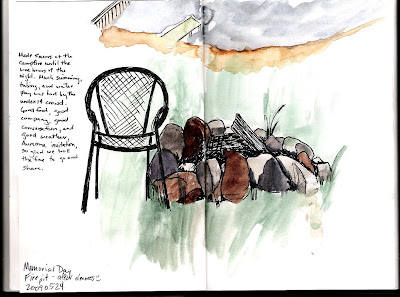 Made S'mores at the
Campfire until the
wee hours of the
night. Much swimming,
tubing, and water
play was had by the
under 14 crowd.
Good food, good
company, good
conversation, and
good weather.
Awesome invitation,
so glad we took
the time to go and
share.
Memorial Day
Fire pit - after s'mores
20090524